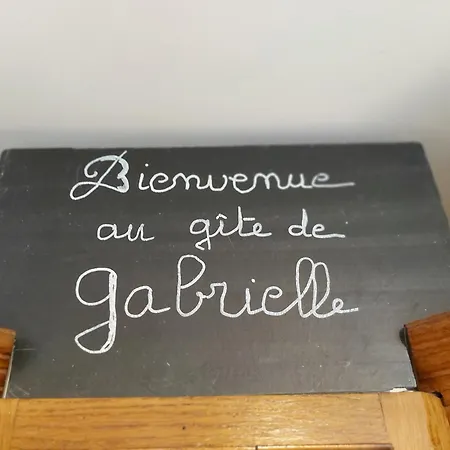 Bienvenue
au gîte de
gabrielle